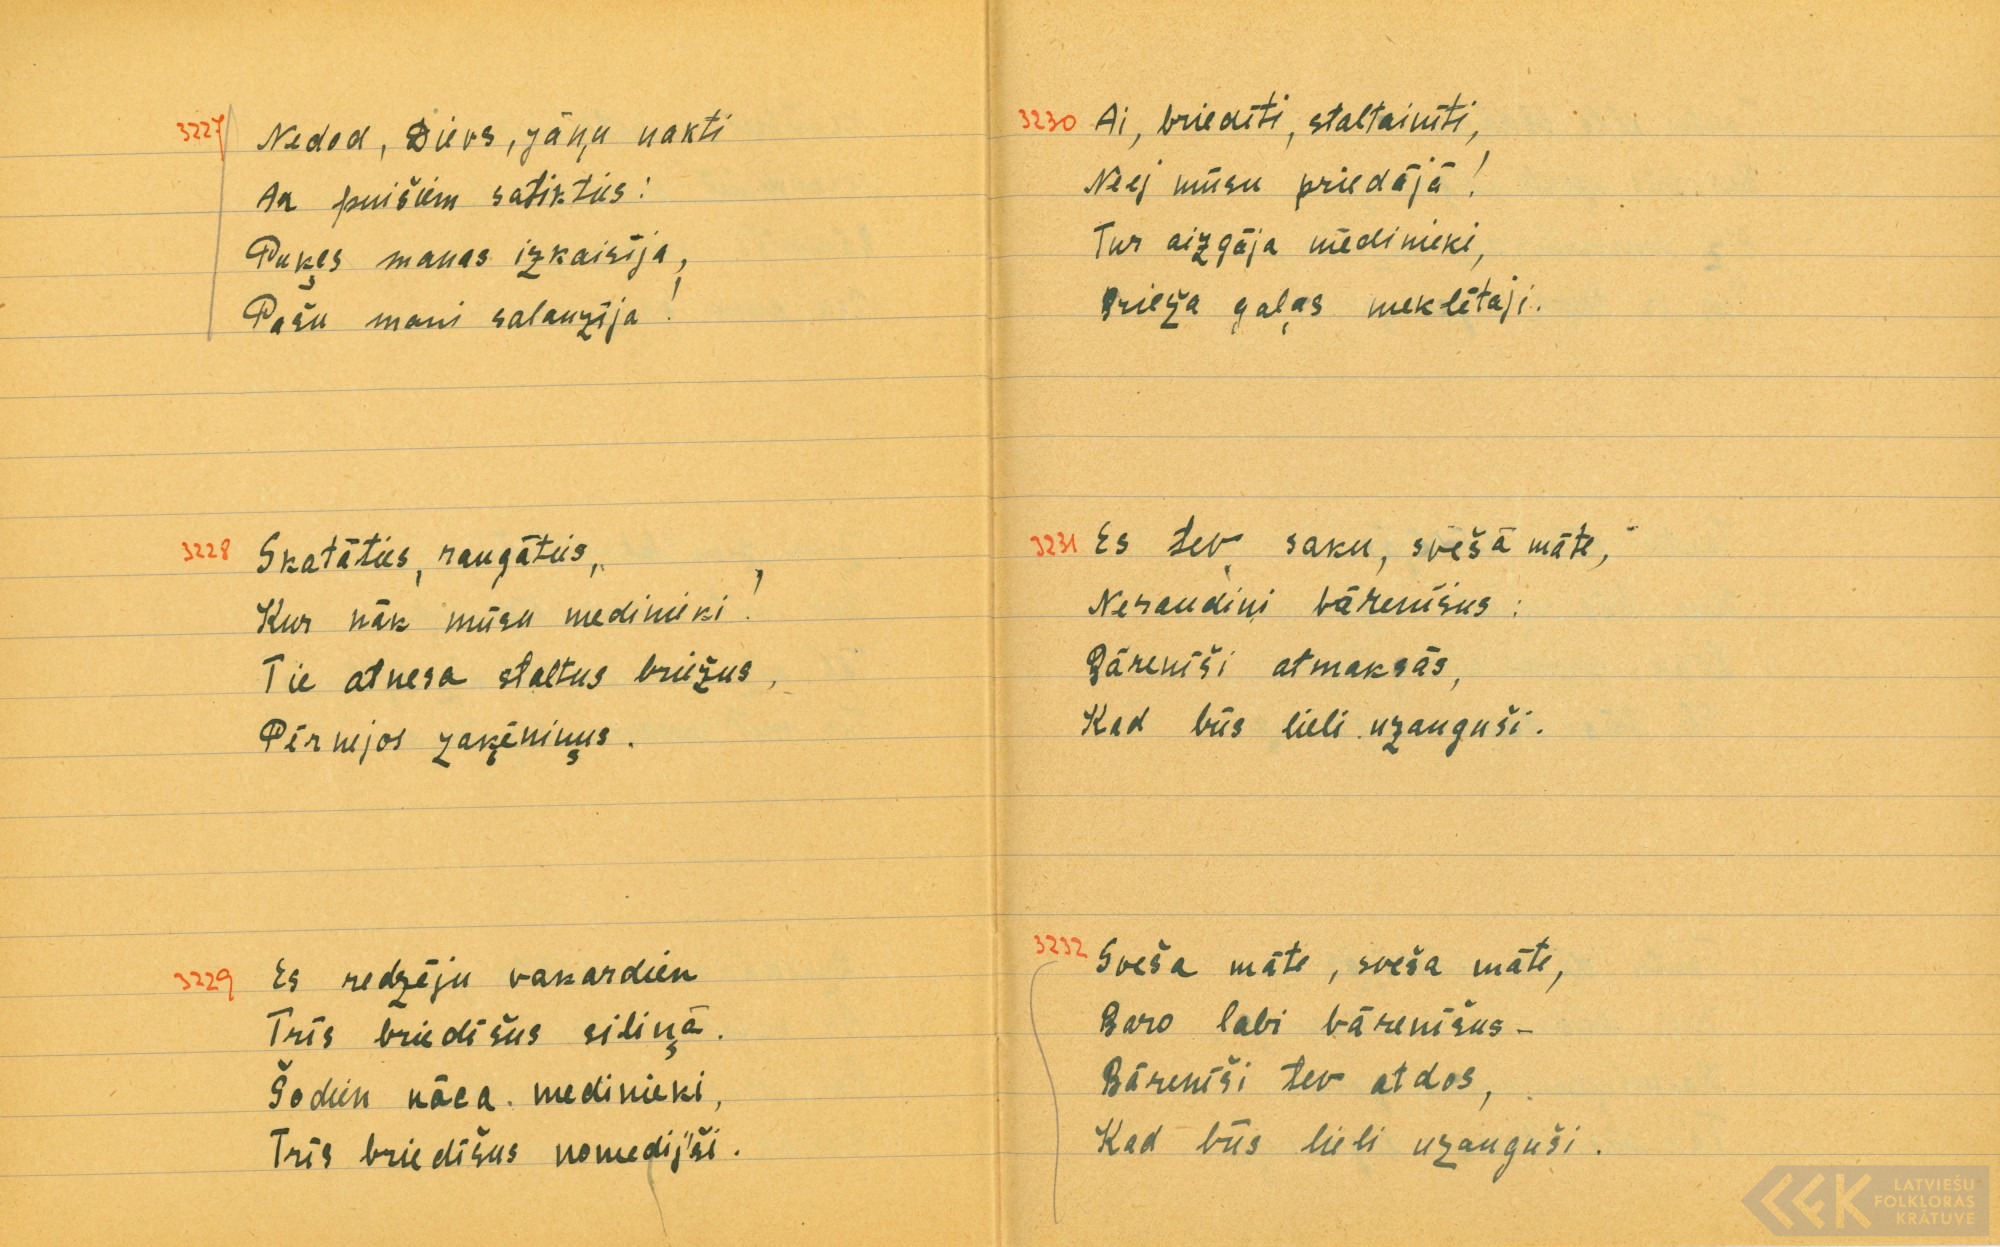 3227
Nedod, Dievs, Jāņu nakti
Ar puišiem satikties:
Puķes manas izkaisīja,
Pašu mani salauzīja!
3228
Skatāties, raugāties,
Kur nāk mūsu medinieki!
Tie atnesa staltus briežus,
Pērnejos zaķēniņus.
3229
Es redzēju vakardien
Trīs briedīšus siliņā.
Šodien nāca medinieki,
Trīs briedīšus nomedījši.
3230
Ai, briedīti, staltainīti,
Neej mūsu priedājā!
Tur aizgāja mēdinieki,
Brieža gaļas meklētaji.
3231
Es tev saku, svešā māte,
Neraudini bārenīšus:
Bārenīši atmaksās,
Kad būs lieli uzauguši.
3232
Sveša māte, sveša māte,
Baro labi bārenīšus –
Bārenīši tev atdos,
Kad būs lieli uzauguši.
LATVIEŠU
FOLKLORAS
KRĀTUVE